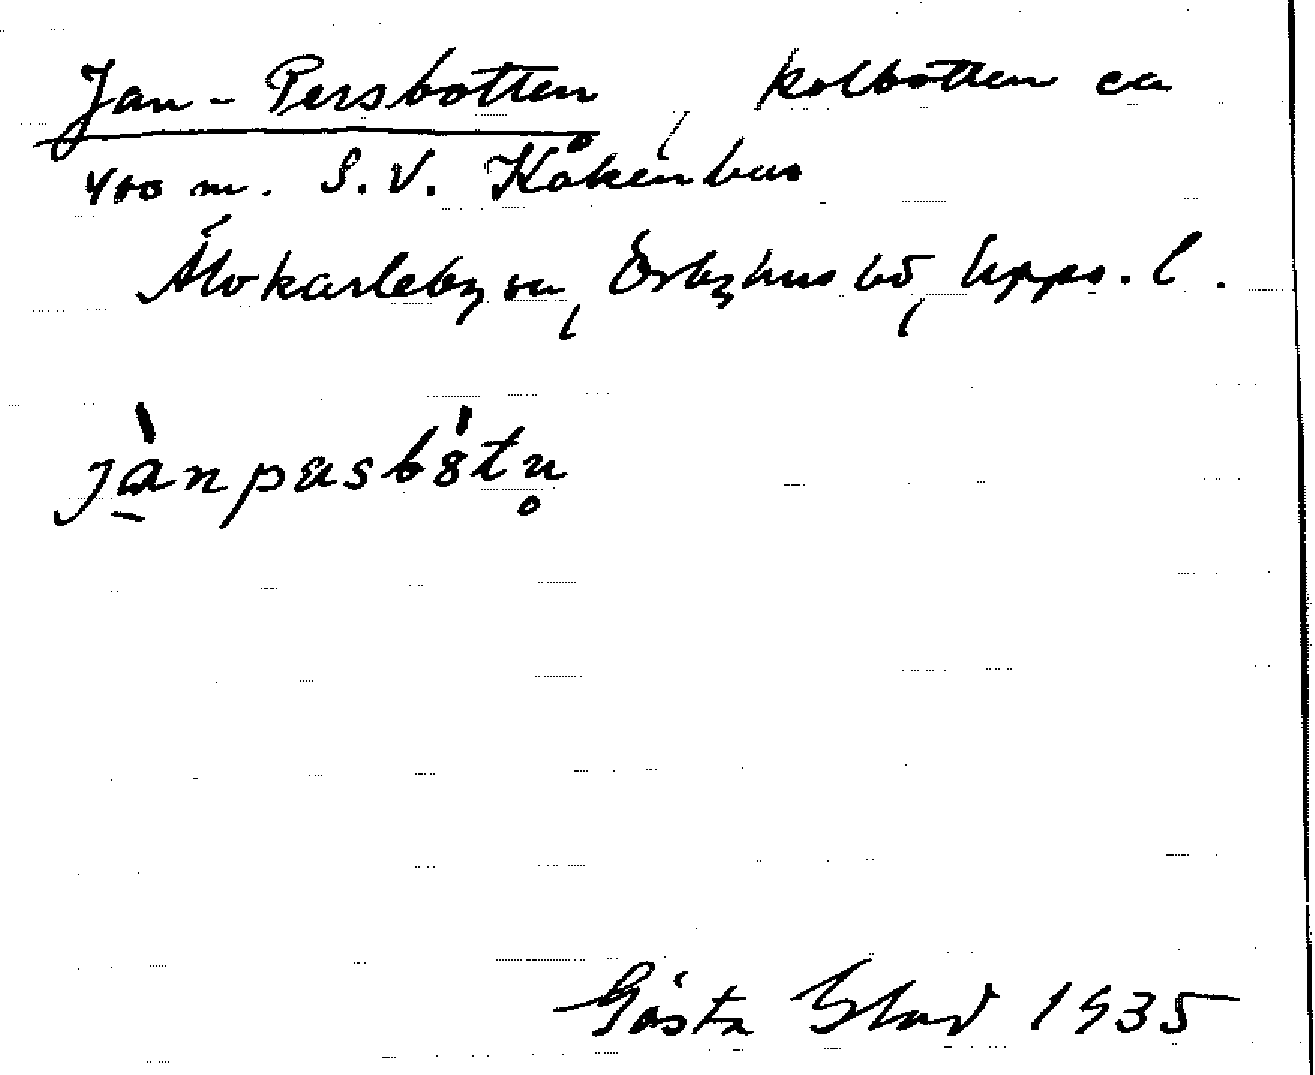 Jan-Persbotten, kolbotten ca
400 m. S.V. Kåkenhus
Älvkarleby sn, Örbyhus hd, Upps. l.
jànpæsbòtn̥
Gösta 1935